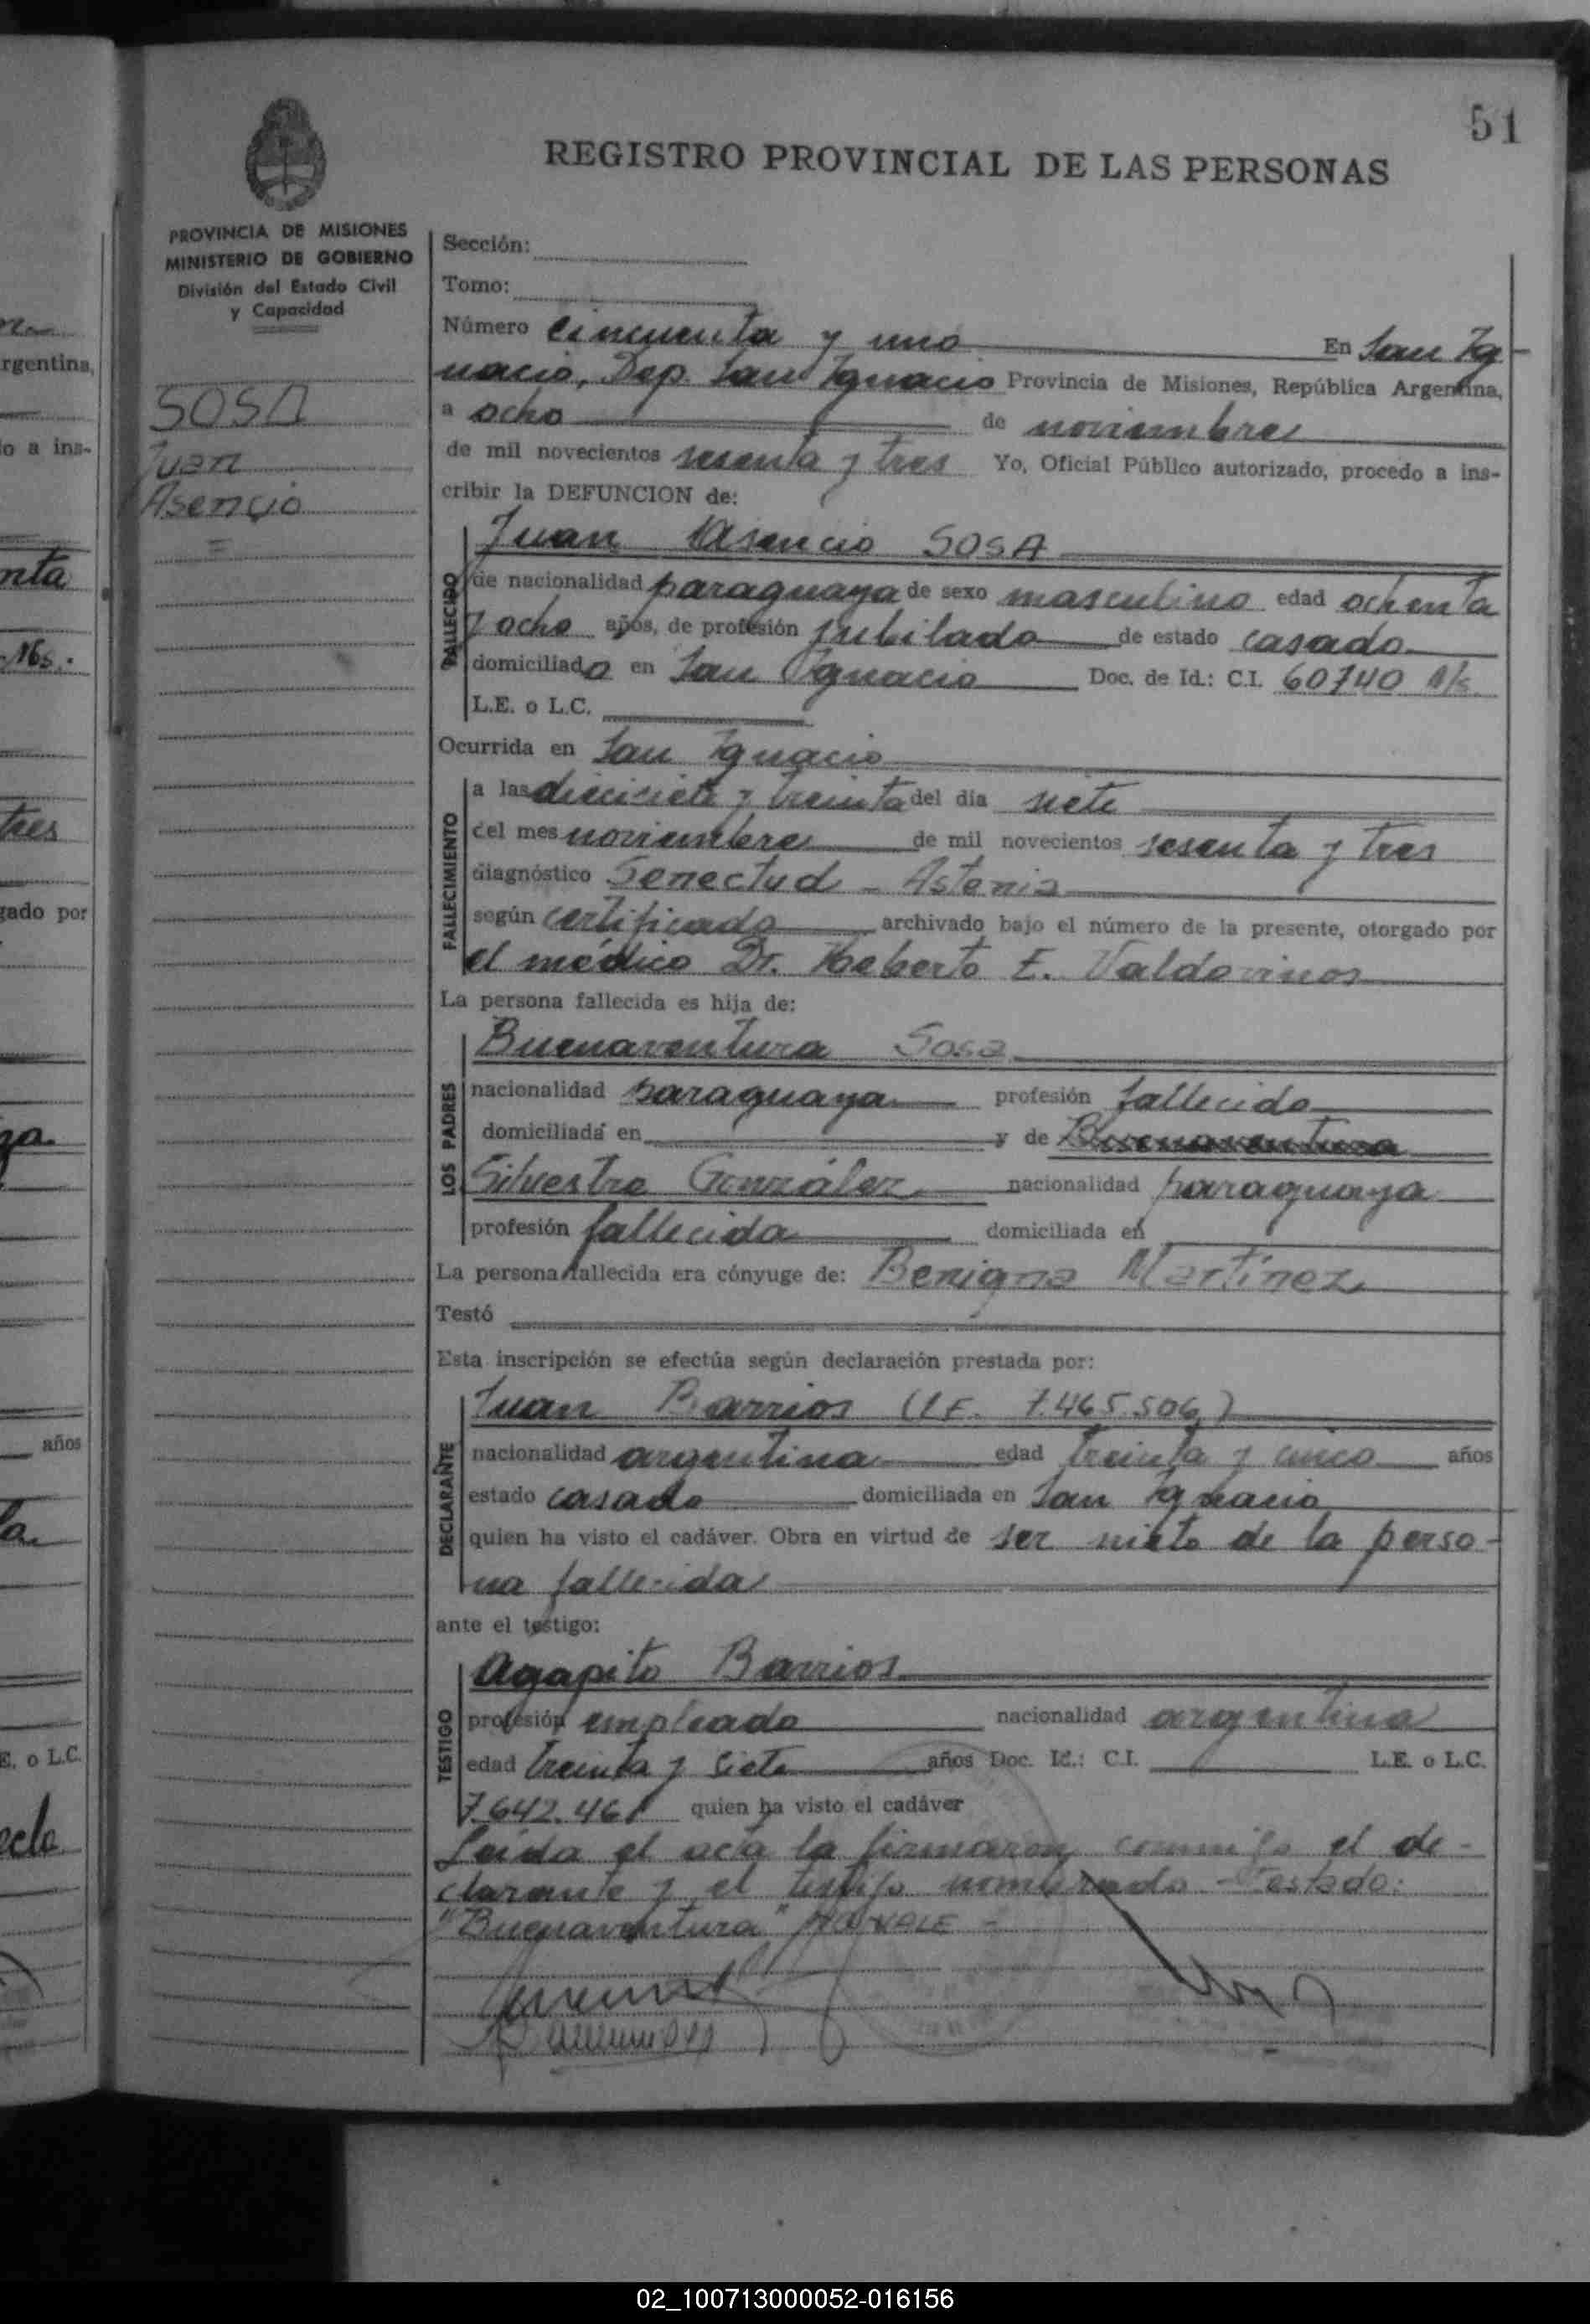 51
REGISTRO PROVINCIAL DE LAS PERSONAS
PROVINCIA DE MISIONES
MINISTERIO DE GOBIERNO
División del Estado Civil
y Capacidad
SOSA
Juan
Asencio
Sección:
Tomo:
Número Cincuenta y uno En San Ig-
nacio, Dep. San Ignacio Provincia de Misiones, República Argentina,
a ocho de noviembre
de mil novecientos sesenta y tres Yo, Oficial Público autorizado, procedo a ins-
cribir la DEFUNCION de:
FALLECIDO
Juan Asencio SOSA
de nacionalidad paraguaya de sexo masculino edad ochenta
y ocho años, de profesión jubilado de estado casado
domiciliado en San Ignacio Doc. de Id.: C.I. 60740
L.E. o L.C.
Ocurrida en San Ignacio
FALLECIMIENTO
a las diecisiete y treinta del día siete
del mes noviembre de mil novecientos sesenta y tres
diagnóstico Senectud - Astenia
según certificado archivado bajo el número de la presente, otorgado por
el médico Dr. Heberto E. Valdovinos
La persona fallecida es hija de:
LOS PADRES
Buenaventura Sosa
nacionalidad paraguaya profesión fallecido
domiciliada en y de Buenaventura
Silvestra González nacionalidad paraguaya
profesión fallecida domiciliada en
La persona fallecida era cónyuge de: Benigna Martínez
Testó
Esta inscripción se efectúa según declaración prestada por:
DECLARANTE
Juan Barrios (LE. 7.465.506)
nacionalidad argentina edad treinta y cinco años
estado casado domiciliada en San Ignacio
quien ha visto el cadáver. Obra en virtud de ser nieto de la perso-
na fallecida
ante el testigo:
TESTIGO
Agapito Barrios
profesión empleado nacionalidad argentina
edad treinta y siete años Doc. Id.: C.I. L.E. o L.C.
7.642.461 quien ha visto el cadáver
Leída el acta la firmaron conmigo el de-
clarante y el testigo nombrado - Testado:
"Buenaventura" NO VALE -
rgentina,
o a ins-
nta
tres
gado por
años
E. o L.C.
02_100713000052-016156